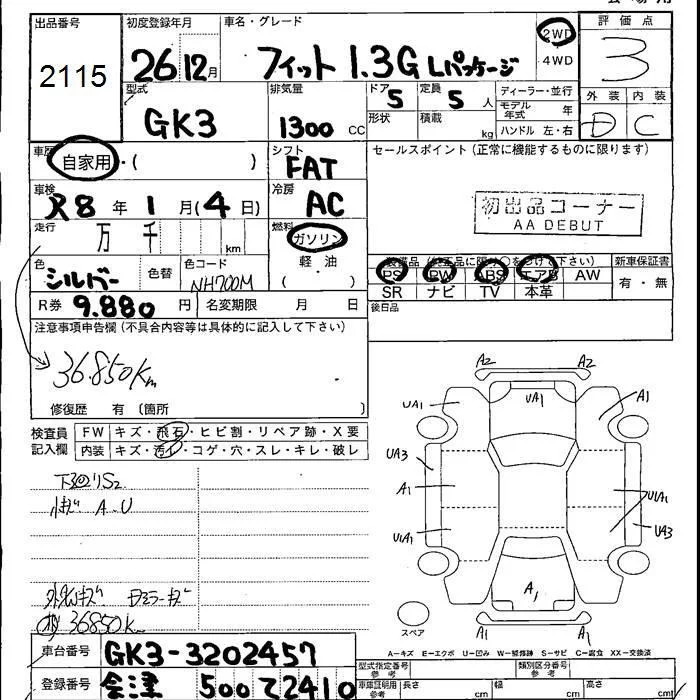 出品番号 初度登録年月 車名・グレード 評価点
2115 26 12月 フィット 1.3G Lパッケージ 2WD 4WD 3
型式 排気量 ドア 定員 ディーラー・並行 外装 内装
GK3 1300 CC 5 5 人 モデル年式 年 D C
形状 積載 kg ハンドル 左・右
車歴 自家用・( ) シフト FAT セールスポイント (正常に機能するものに限ります)
車検 R8 年 1 月 (4 日) 冷房 AC 初出品コーナー
AA DEBUT
走行 万 千 km 燃料 ガソリン
軽・油
( )
色 シルバー 色替 色コード NH700M
装備品 (純正品に限り○をつけて下さい) 新車保証書
PS PW ABS エアB AW 有・無
SR ナビ TV 本革
R券 9.880 円 名変期限 月 日 後日品
注意事項申告欄 (不具合内容等は具体的に記入して下さい)
36.850Km
修復歴 有 〔箇所 〕
検査員記入欄 FW キズ・飛石・ヒビ割・リペア跡・X要
内装 キズ・汚れ・コゲ・穴・スレ・キレ・破レ
下回りS2
A・U
36850Km
A2 A2
UA1 UA1 A1
UA3
A1 U1A1
U1A1 UA3
A1
スペア A1 A1
A-キズ E-エクボ U-凹み W-補修跡 S-サビ C-腐食 XX-交換済
車台番号 GK3-3202457 型式指定番号 参考 類別区分番号 参考
登録番号 会津 500 て 2410 車庫証明用 参考 長さ cm 幅 cm 高さ cm